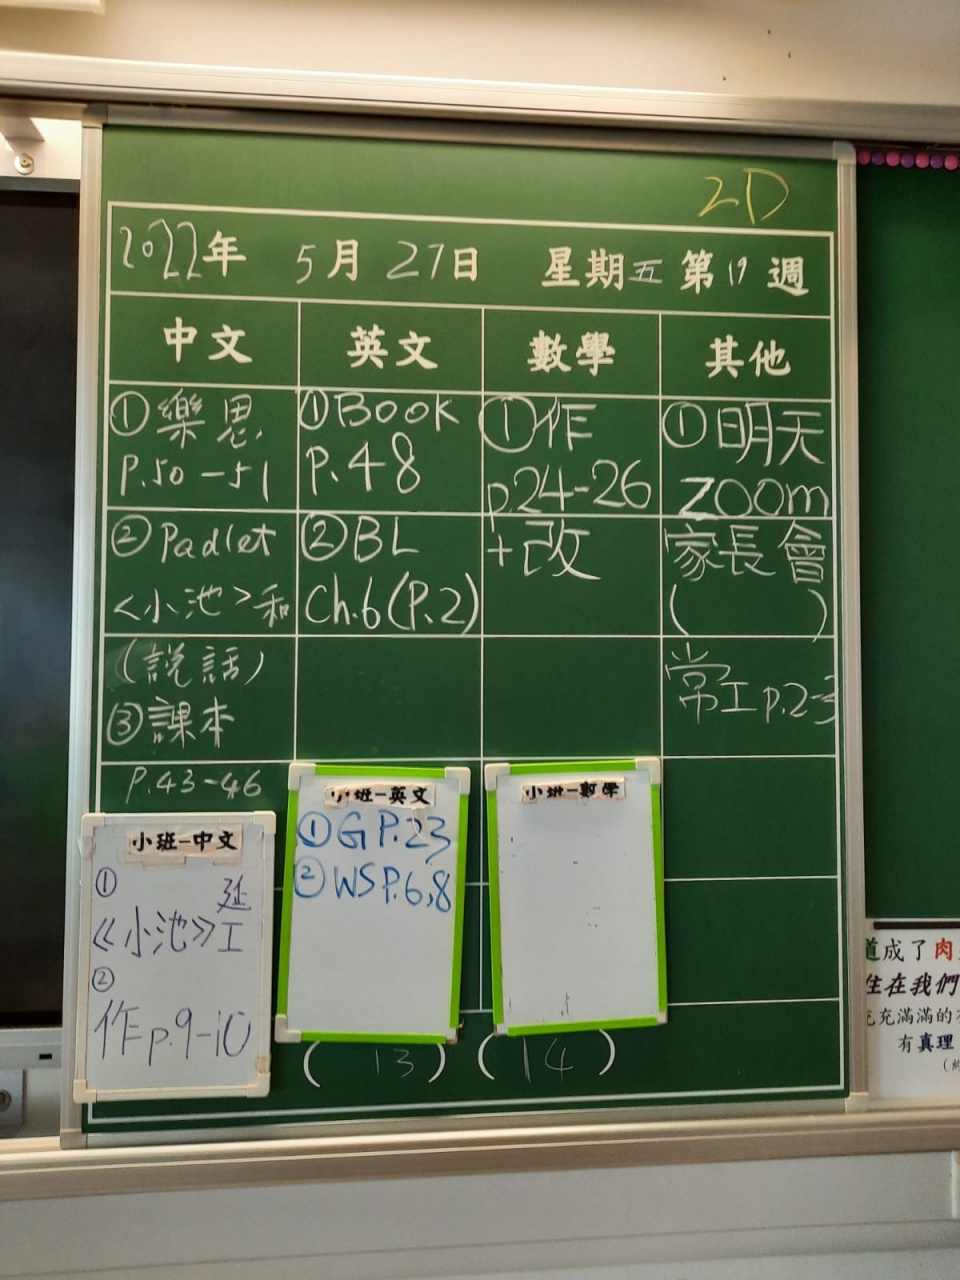 2D
2022年 5月27日 星期五 第19週
中文 英文 數學 其他
①樂思
P.50-51
②Padlet
<小池>和
(説話)
③課本
P.43-46
①Book
P.48
②BL
Ch.6(P.2)
①作
p.24-26
+改
①明天
ZOOM
家長會
( )
常工p.2-3
小班-中文
①
延
《小池》工
②
作p.9-10
小班-英文
①GP.23
②WSP.6,8
小班-數學
(13) (14)
道成了肉
住在我們
充充滿滿的
有真理